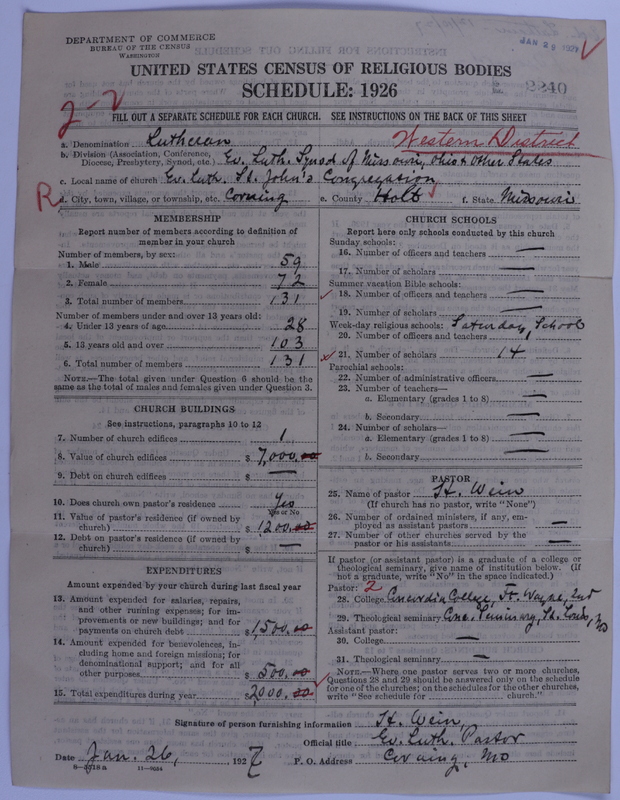 DEPARTMENT OF COMMERCE
BUREAU OF THE CENSUS
WASHINGTON
JAN 29 1927
UNITED STATES CENSUS OF RELIGIOUS BODIES
SCHEDULE: 1926
2240
2-2
FILL OUT A SEPARATE SCHEDULE FOR EACH CHURCH. SEE INSTRUCTIONS ON THE BACK OF THIS SHEET
a. Denomination Lutheran
Western District
b. Division (Association, Conference, Diocese, Presbytery, Synod, etc.) Ev. Luth. Synod of Missouri, Ohio & Other States
c. Local name of church Ev. Luth. St. John's Congregation
R d. City, town, village, or township, etc. Corning e. County Holt f. State Missouri
MEMBERSHIP
Report number of members according to definition of
member in your church
Number of members, by sex:
1. Male 59
2. Female 72
3. Total number of members 131
Number of members under and over 13 years old:
4. Under 13 years of age 28
5. 13 years old and over 103
6. Total number of members 131
NOTE.—The total given under Question 6 should be
same as the total of males and females given under Question 3.
CHURCH BUILDINGS
See instructions, paragraphs 10 to 12
7. Number of church edifices 1
8. Value of church edifices $ 7,000.00
9. Debt on church edifices $ —
10. Does church own pastor's residence Yes
Yes or No
11. Value of pastor's residence (if owned by
church) $ 1200.00
12. Debt on pastor's residence (if owned by
church) $ —
EXPENDITURES
Amount expended by your church during last fiscal year
13. Amount expended for salaries, repairs,
and other running expenses; for im-
provements or new buildings; and for
payments on church debt $ 1,500.00
14. Amount expended for benevolences, in-
cluding home and foreign missions; for
denominational support; and for all
other purposes $ 500.00
15. Total expenditures during year $ 2000.00
CHURCH SCHOOLS
Report here only schools conducted by this church
Sunday schools:
16. Number of officers and teachers —
17. Number of scholars —
Summer vacation Bible schools:
18. Number of officers and teachers —
19. Number of scholars —
Week-day religious schools: Saturday School
20. Number of officers and teachers 1
21. Number of scholars 14
Parochial schools:
22. Number of administrative officers —
23. Number of teachers—
a. Elementary (grades 1 to 8) —
b. Secondary —
24. Number of scholars—
a. Elementary (grades 1 to 8) —
b. Secondary —
PASTOR
25. Name of pastor H. Wein
(If church has no pastor, write "None")
26. Number of ordained ministers, if any, em-
ployed as assistant pastors —
27. Number of other churches served by the
pastor or his assistants —
If pastor (or assistant pastor) is a graduate of a college or
theological seminary, give name of institution below. (If
not a graduate, write "No" in the space indicated.)
Pastor: 2
28. College Concordia College, Ft. Wayne, Ind
29. Theological seminary Conc. Seminary, St. Louis, Mo
Assistant pastor:
30. College —
31. Theological seminary —
NOTE.—Where one pastor serves two or more churches,
Questions 28 and 29 should be answered only on the schedule
for one of the churches; on the schedules for the other churches,
write "See schedule for church."
Signature of person furnishing information H. Wein,
Official title Ev. Luth. Pastor
Date Jan. 26, 1927 P. O. Address Corning, Mo
8-3518a 11-9034